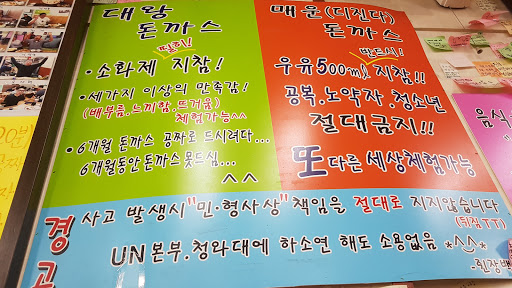 대왕
돈까스
필히!
• 소화제 지참!
• 세가지 이상의 만속감!
(배부름, 느끼함, 뜨거움)
체험가능^^
• 6개월 돈까스 공짜로 드시려다...
6개월동안 돈까스 못드심...
^^
매운(디진다)
돈까스
반드시!
우유500㎖ 지참!!
공복.노약자.청소년
절대금지!!
또 다른 세상체험가능
경고
사고 발생시 "민·형사상" 책임을 절대로 지지않습니다
(뒤짐TT)
UN본부.청와대에 하소연 해도 소용없음 *^^*
-휜장백
0분)
음식